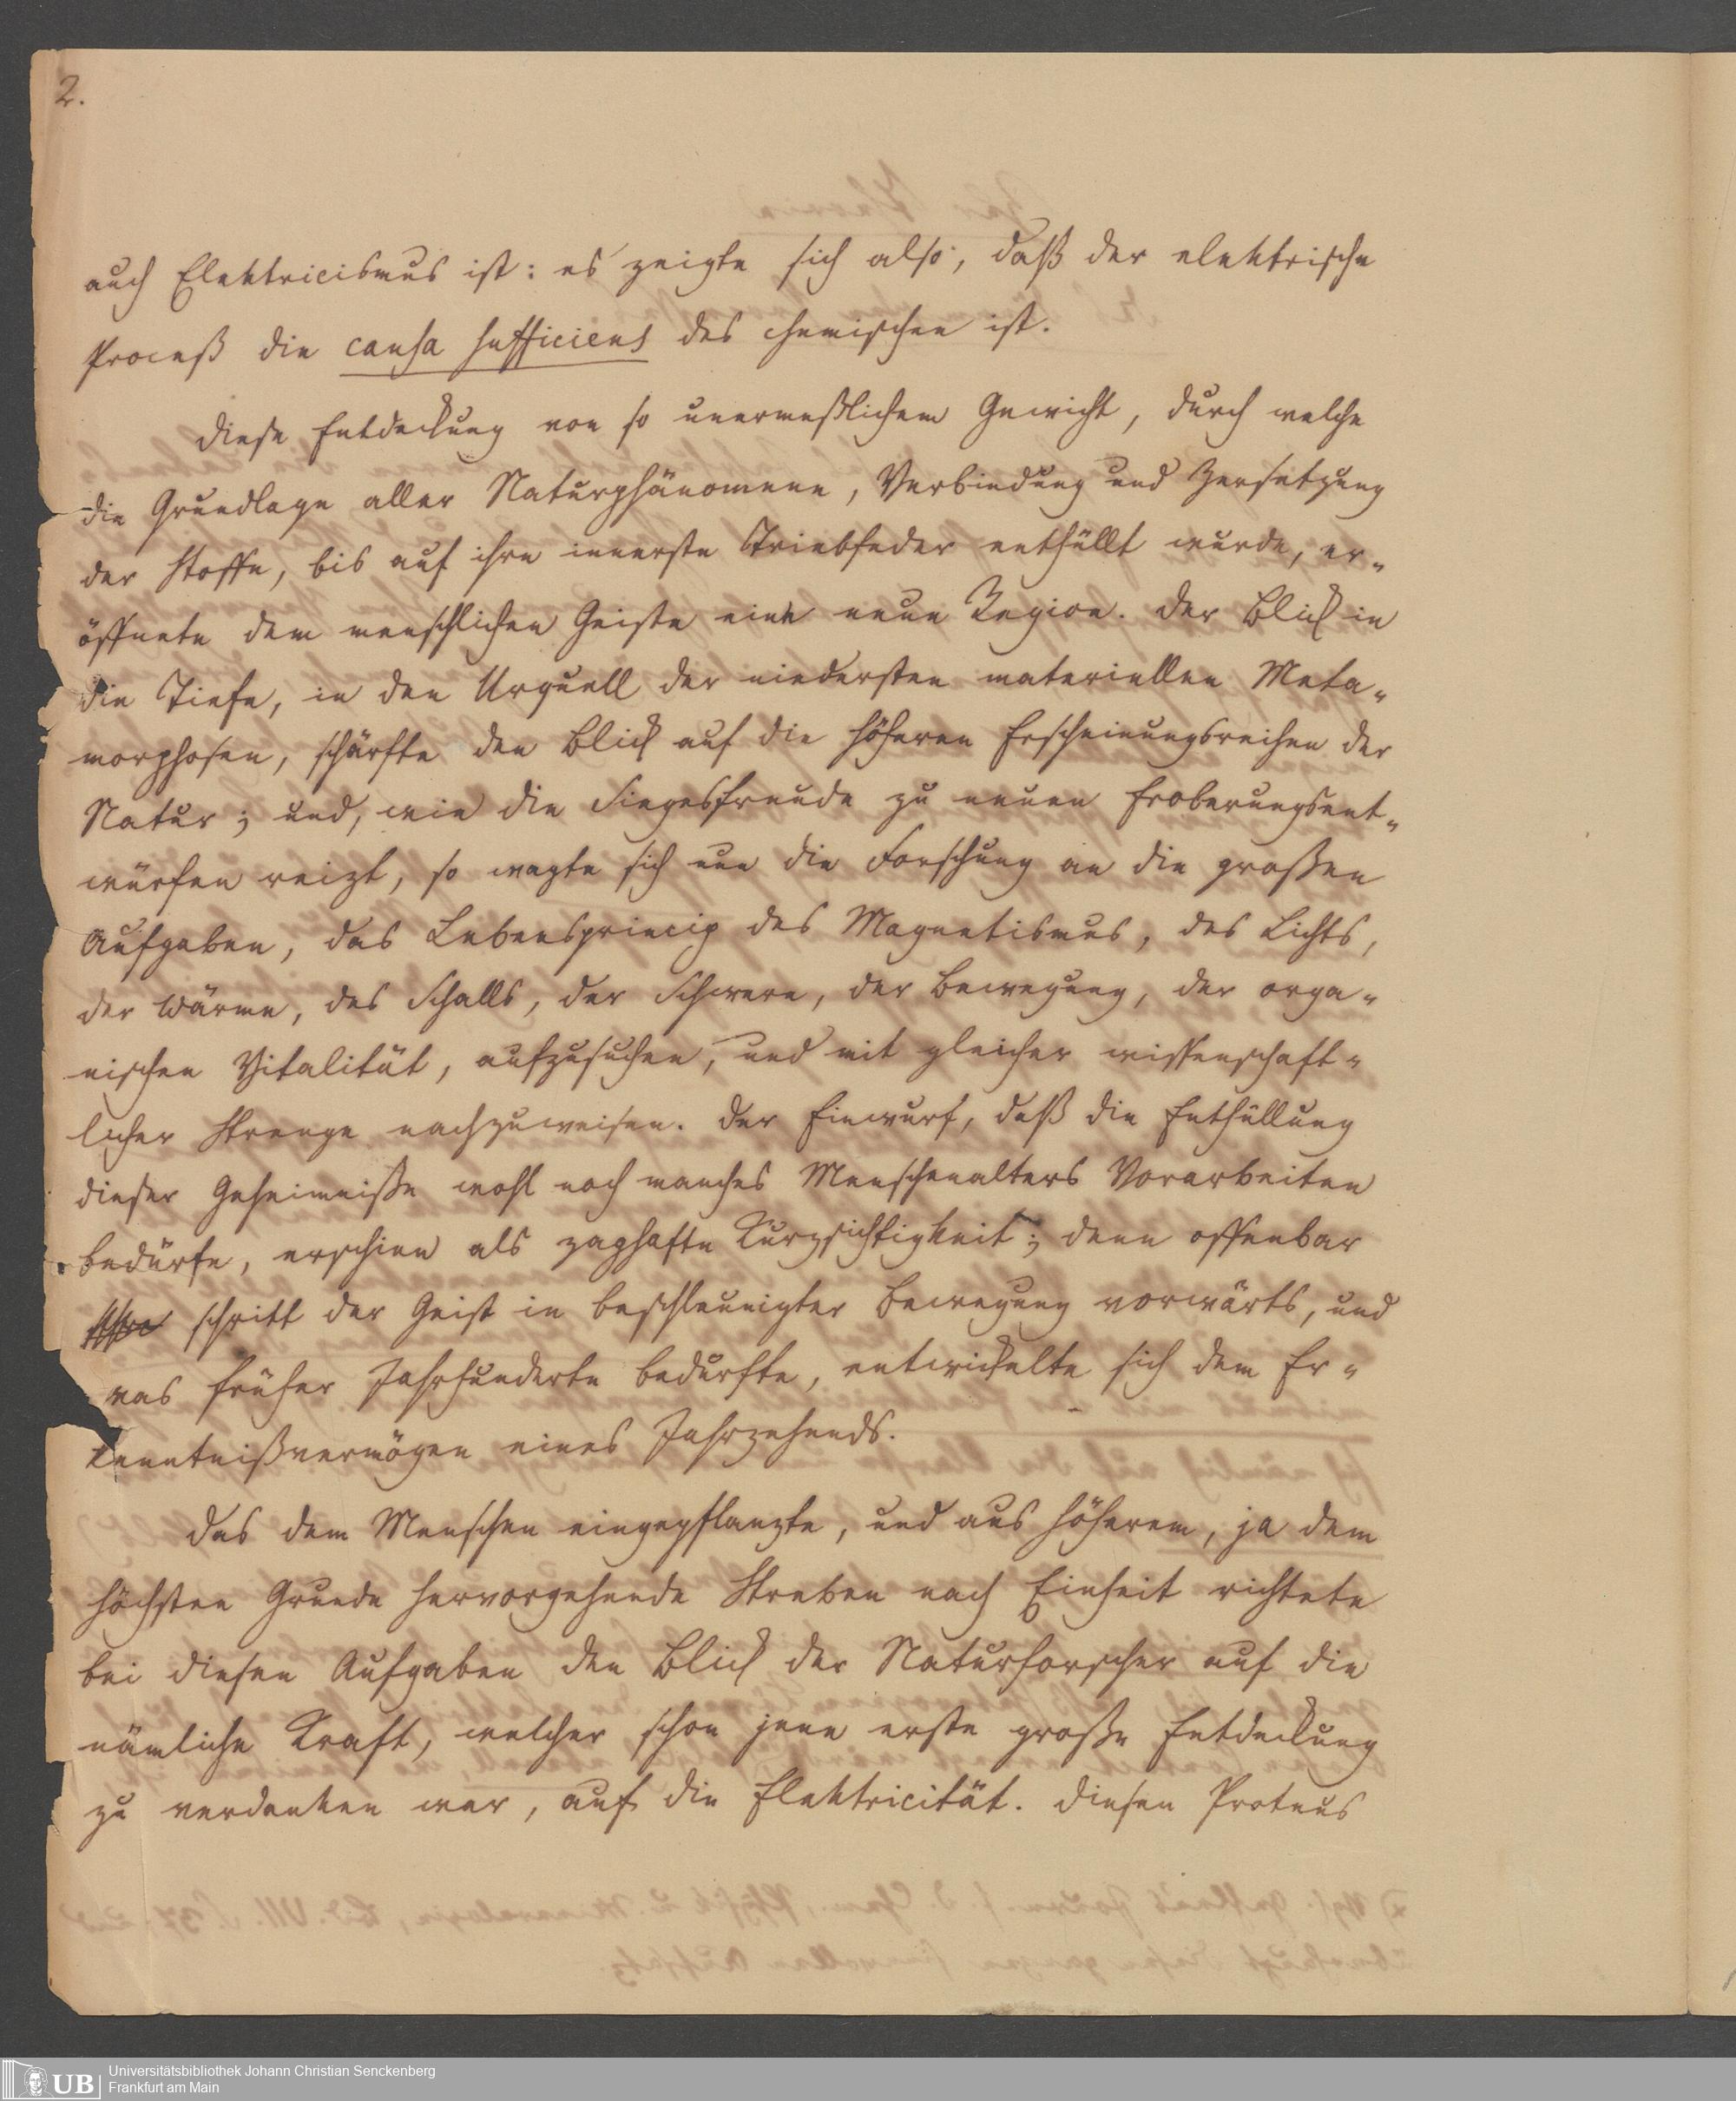 2.
auch Elektricismus ist: es zeigte sich also, daß der elektrische
Proceß die causa sufficiens des chemischen ist.
Diese Entdeckung von so unermeßlichem Gewicht, durch welche
die Grundlage aller Naturphänomene, Verbindung und Zersetzung
der Stoffe, bis auf ihre innerste Triebfeder enthüllt wurde, er-
öffnete dem menschlichen Geiste eine neue Region. Der Blick in
die Tiefe, in den Urquell der niedersten materiellen Meta-
morphosen, schärfte den Blick auf die höheren Erscheinungsreihen der
Natur; und, wie die Siegesfreude zu neuen Eroberungsent-
würfen reizt, so wagte sich nun die Forschung an die großen
Aufgaben, das Lebensprincip des Magnetismus, des Lichts,
der Wärme, des Schalls, der Schwere, der Bewegung, der orga-
nischen Vitalität, aufzusuchen, und mit gleicher wissenschaft-
licher Strenge nachzuweisen. Der Einwurf, daß die Enthüllung
dieser Geheimniße wohl noch manches Menschenalters Vorarbeiten
bedürfe, erschien als zaghafte Kurzsichtigkeit; denn offenbar
schritt der Geist in beschleunigter Bewegung vorwärts, und
was früher Jahrhunderte bedurfte, entwickelte sich dem Er-
kenntnißvermögen eines Jahrzehends.
Das dem Menschen eingepflanzte, und aus höherem, ja dem
höchsten Grunde hervorgehende Streben nach Einheit richtete
bei diesen Aufgaben den Blick der Naturforscher auf die
nämliche Kraft, welcher schon jene erste große Entdeckung
zu verdanken war, auf die Elektricität. Diesen Proteus
UB
Universitätsbibliothek Johann Christian Senckenberg
Frankfurt am Main